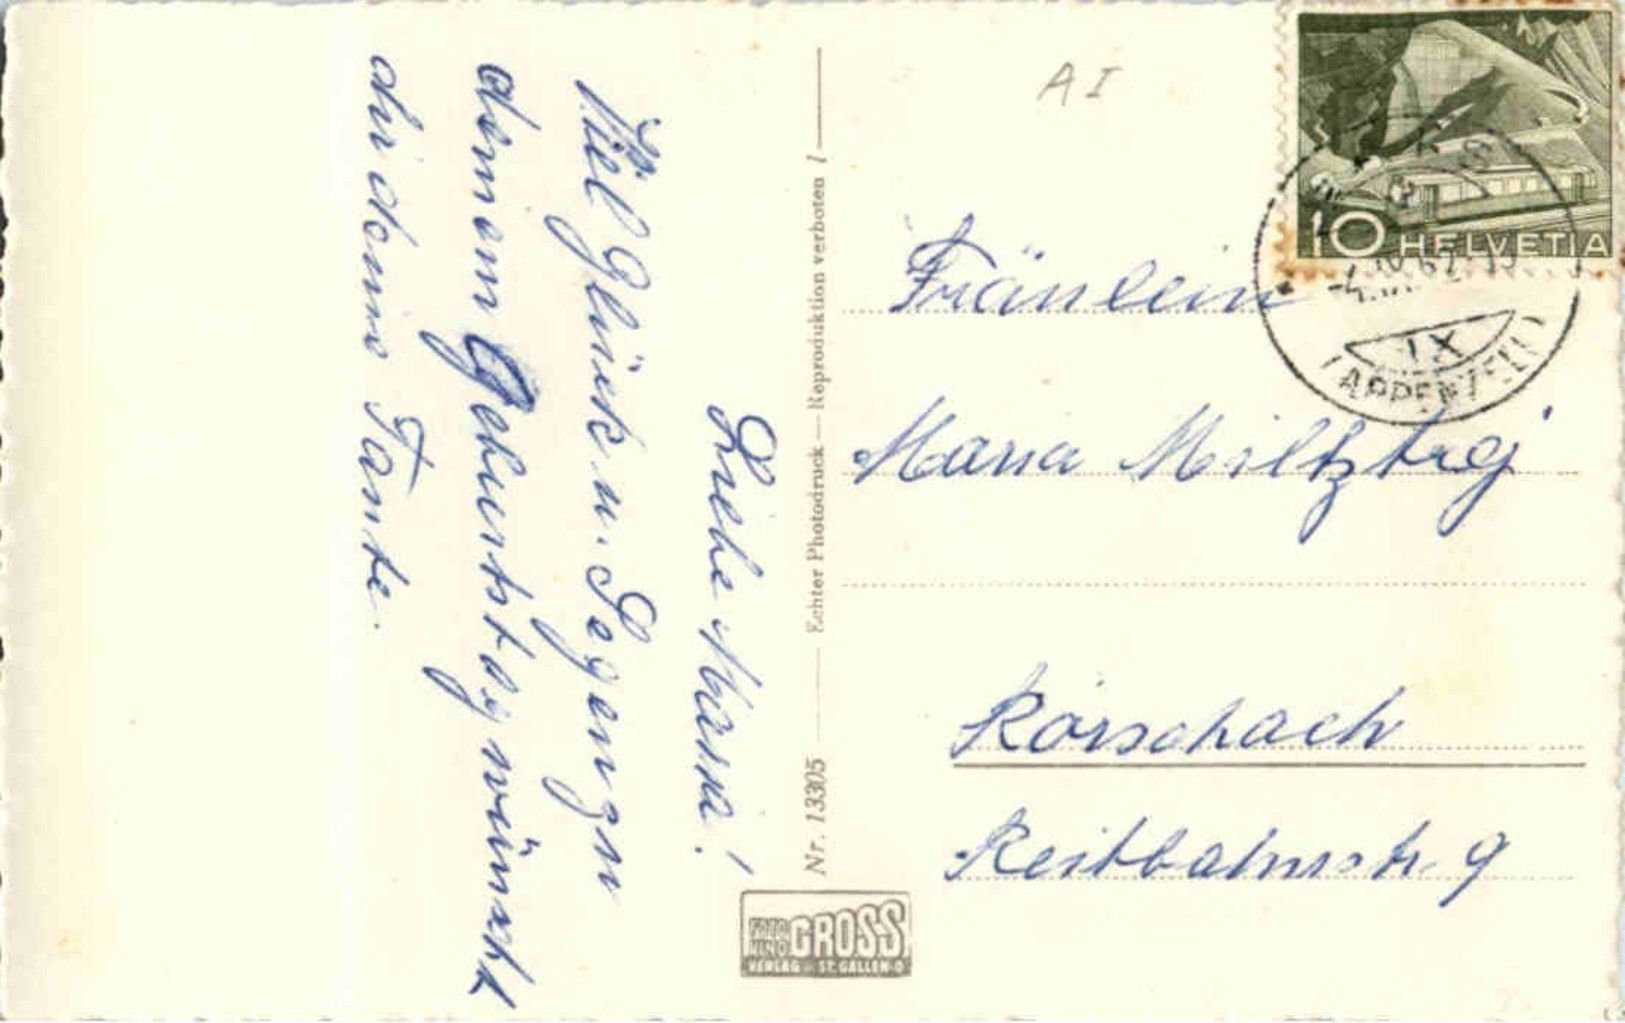 Liebe Maria!
Viel Glück u. Segen zu
deinem Geburtstag wünscht
dir deine Tante.
Nr. 13305 — Echter Photodruck — Reproduktion verboten !
FOTO
KINO GROSS
VERLAG ST. GALLEN O
A I
10 HELVETIA
IX
APPENZELL
Fräulein
Maria
Rorschach
Reitbahnstr. 9